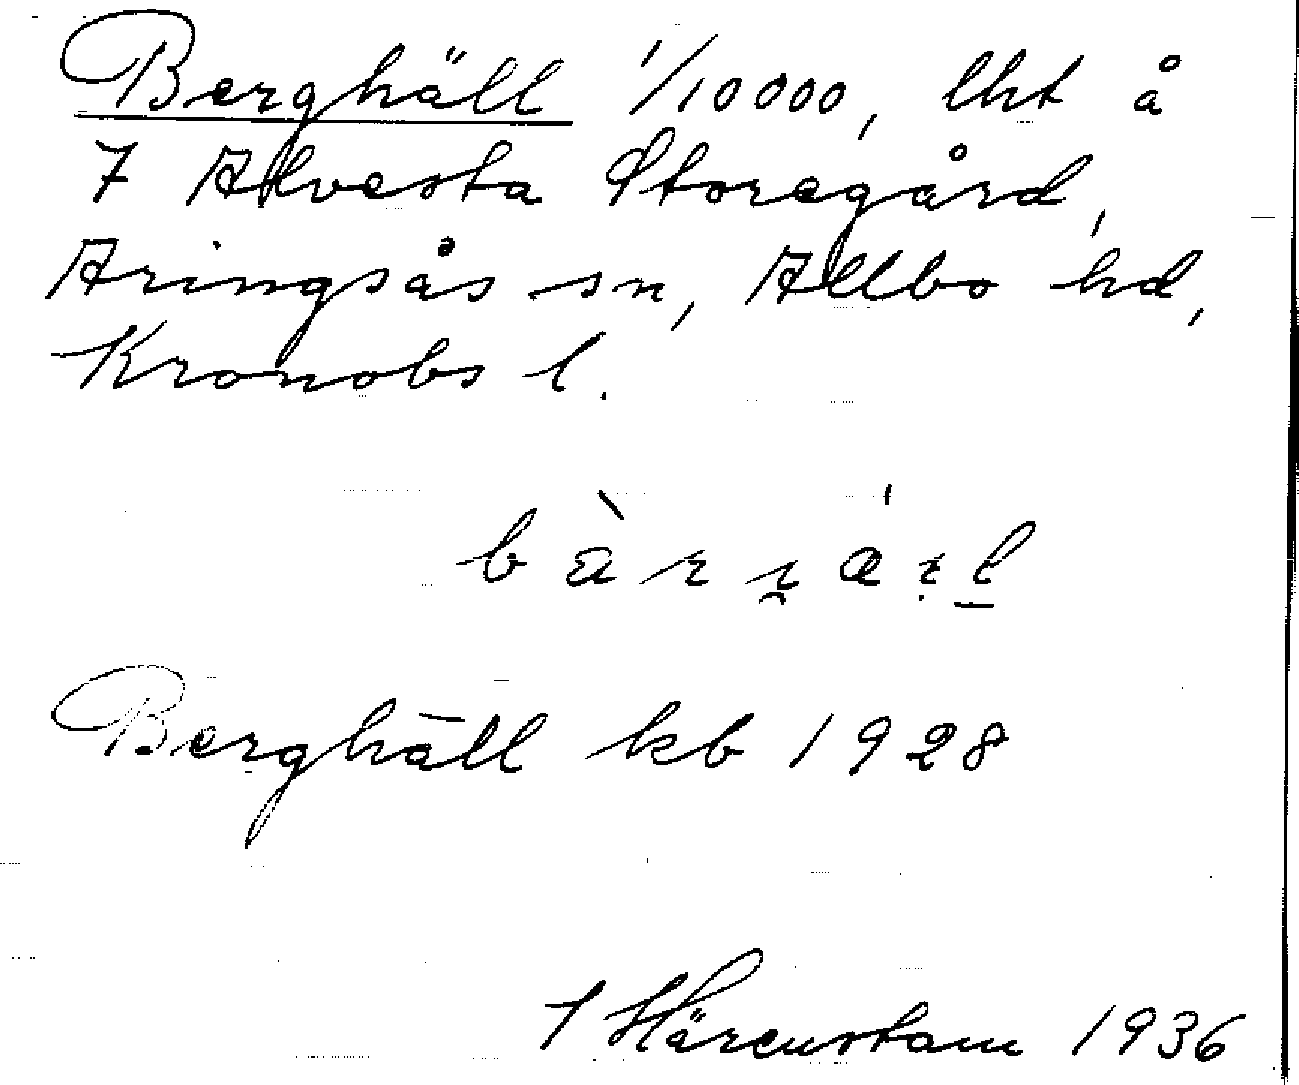 Berghäll 1/10000, lht å
7 Alvesta Storegård,
Aringsås sn, Allbo hd,
Kronobs l.
Berghäll kb 1928
Härenstam 1936